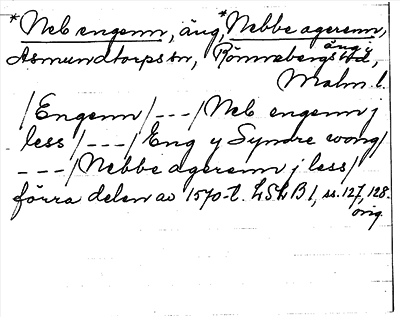 *Neb engenn, äng, *Nebbe agerenn, äng,
Asmundtorps sn, Rönnebergs hd,
Malm. l.
/Engenn/ --- /Neb engenn j
less/ --- /Eng y Syndre wong/
--- /Nebbe agerenn j less/
förra delen av 1570-t. LSLB 1, ss. 127, 128.
orig.